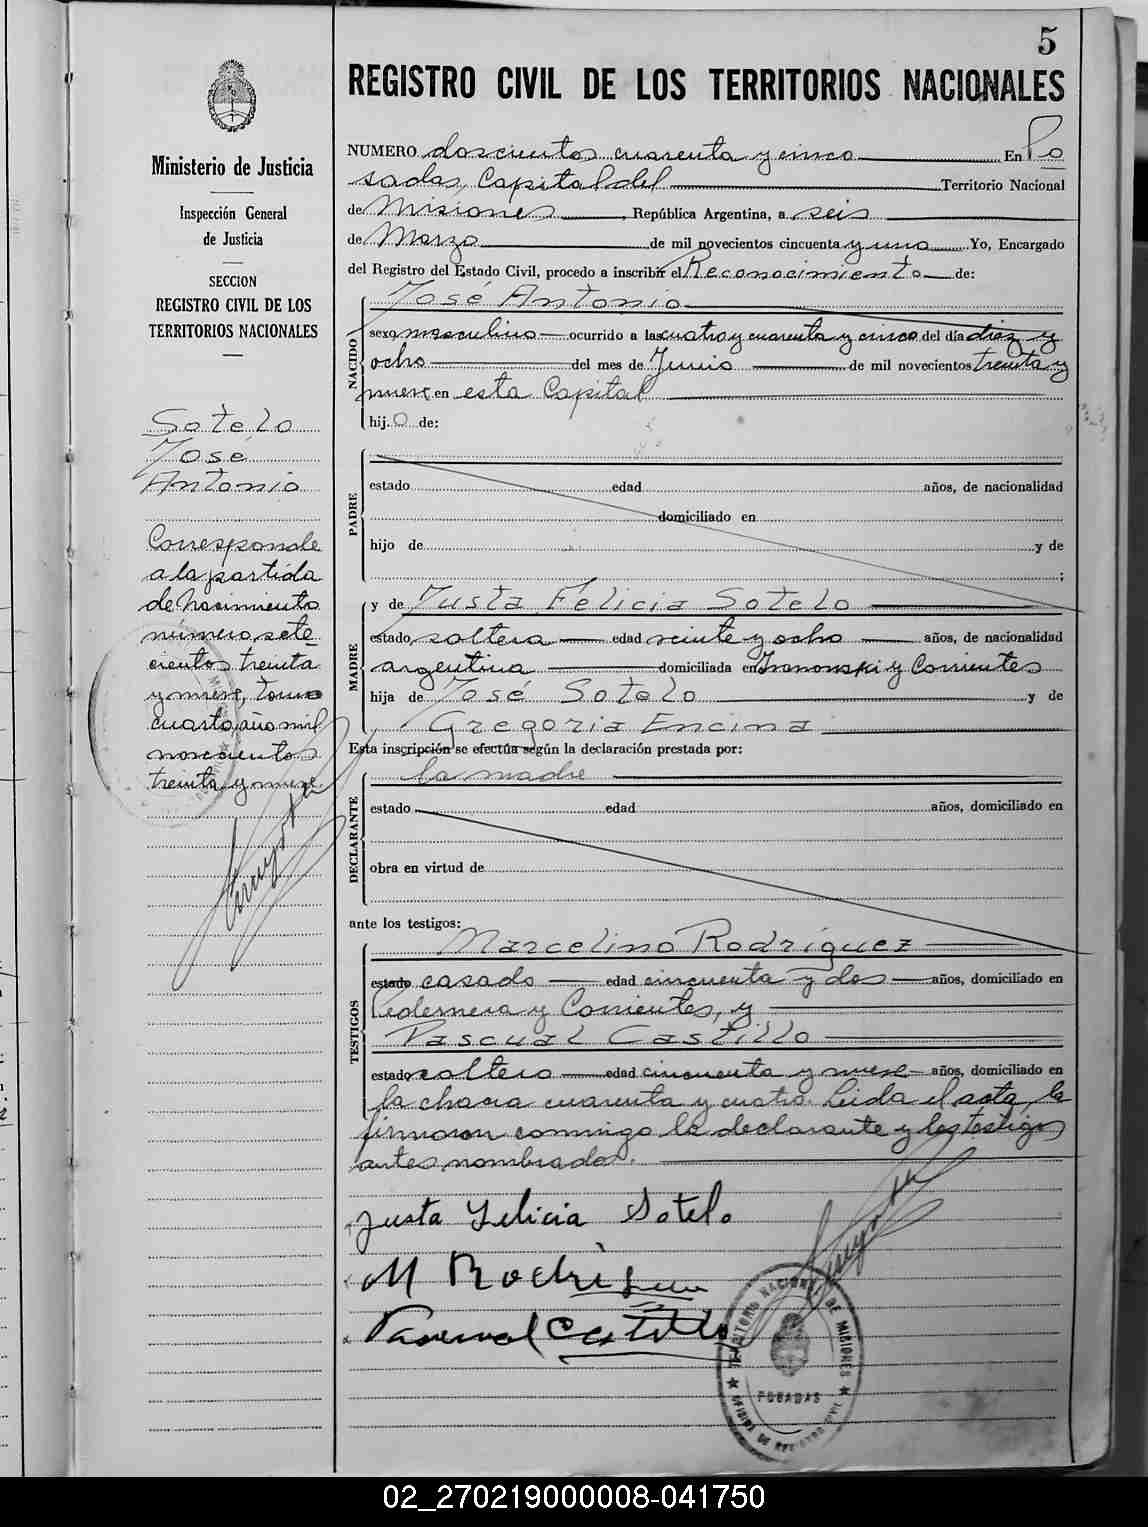 5
REGISTRO CIVIL DE LOS TERRITORIOS NACIONALES
Ministerio de Justicia
Inspección General
de Justicia
SECCION
REGISTRO CIVIL DE LOS
TERRITORIOS NACIONALES
Sotelo
José
Antonio
Corresponde
a la partida
de Nacimiento
número sete-
cientos treinta
y nueve, tomo
cuarto año mil
novecientos
treinta y nueve.
NUMERO doscientos cuarenta y cinco En Po
sadas, Capital del Territorio Nacional
de Misiones, República Argentina, a seis
de Marzo de mil novecientos cincuenta y uno Yo, Encargado
del Registro del Estado Civil, procedo a inscribir el Reconocimiento de:
NACIDO
José Antonio
sexo masculino ocurrido a las cuatro y cuarenta y cinco del día diez y
ocho del mes de Junio de mil novecientos treinta y
nueve en esta Capital
hij.o de:
PADRE
estado edad años, de nacionalidad
domiciliado en
hijo de y de
;
MADRE
y de Justa Felicia Sotelo
estado soltera edad veinte y ocho años, de nacionalidad
argentina domiciliada en y Corrientes
hija de José Sotelo y de
Gregoria Encina
Esta inscripción se efectúa según la declaración prestada por:
DECLARANTE
la madre
estado edad años, domiciliado en
obra en virtud de
ante los testigos:
TESTIGOS
Marcelino Rodríguez
estado casado edad cincuenta y dos años, domiciliado en
Pedernera y Corrientes, y
Pascual Castillo
estado soltero edad cincuenta y nueve años, domiciliado en
la chacra cuarenta y cuatro. Leida el acta, la
firmaron conmigo la declarante y los testigos
antes nombrados.
Justa Felicia Sotelo
M Rodriguez
Pascual Castillo
TERRITORIO NACIONAL DE MISIONES
POSADAS
OFICINA DE REGISTRO CIVIL
02_270219000008-041750